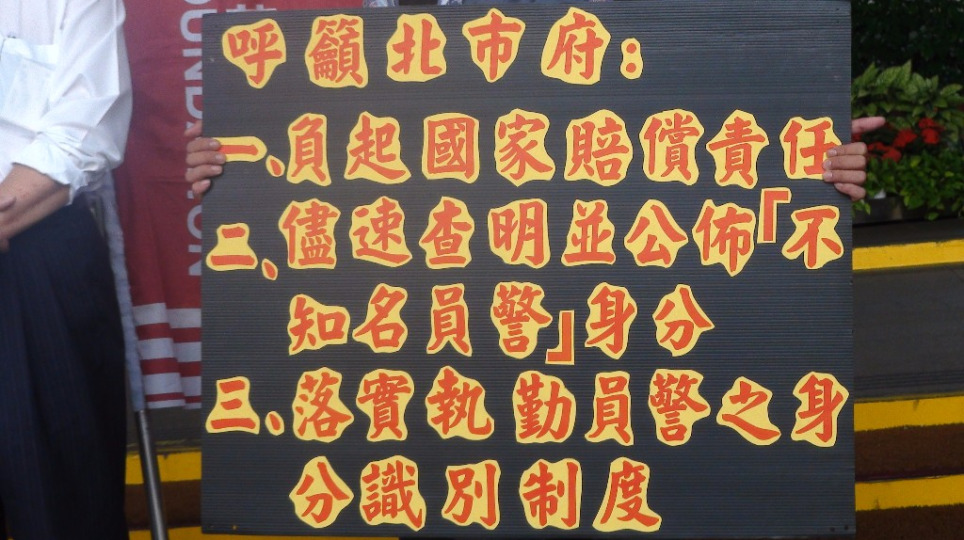 呼籲北市府：
一、負起國家賠償責任
二、儘速查明並公佈「不
知名員警」身分
三、落實執勤員警之身
分識別制度